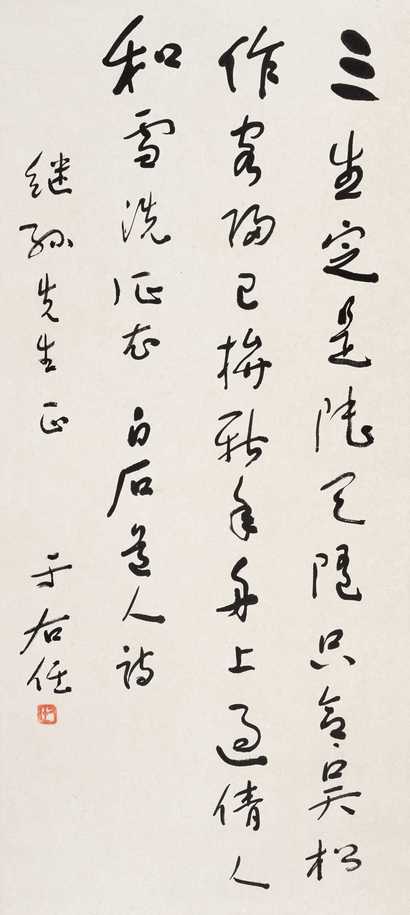 三生定是陸天隨只向吳松
作客歸已拚新年舟上過倩人
和雪洗征衣 白石道人詩
继孫先生正 于右任